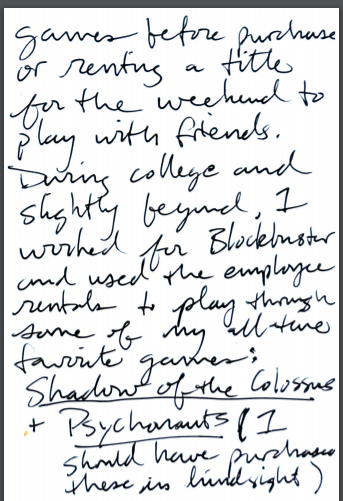 games before purchase
or renting a title
for the weekend to
play with friends.
During college and
slightly beyond, I
worked for Blockbuster
and used the employee
rentals to play through
some of my all-time
favorite games:
Shadow of the Colossus
+ Psychonauts (I
should have purchased
these in hindsight)